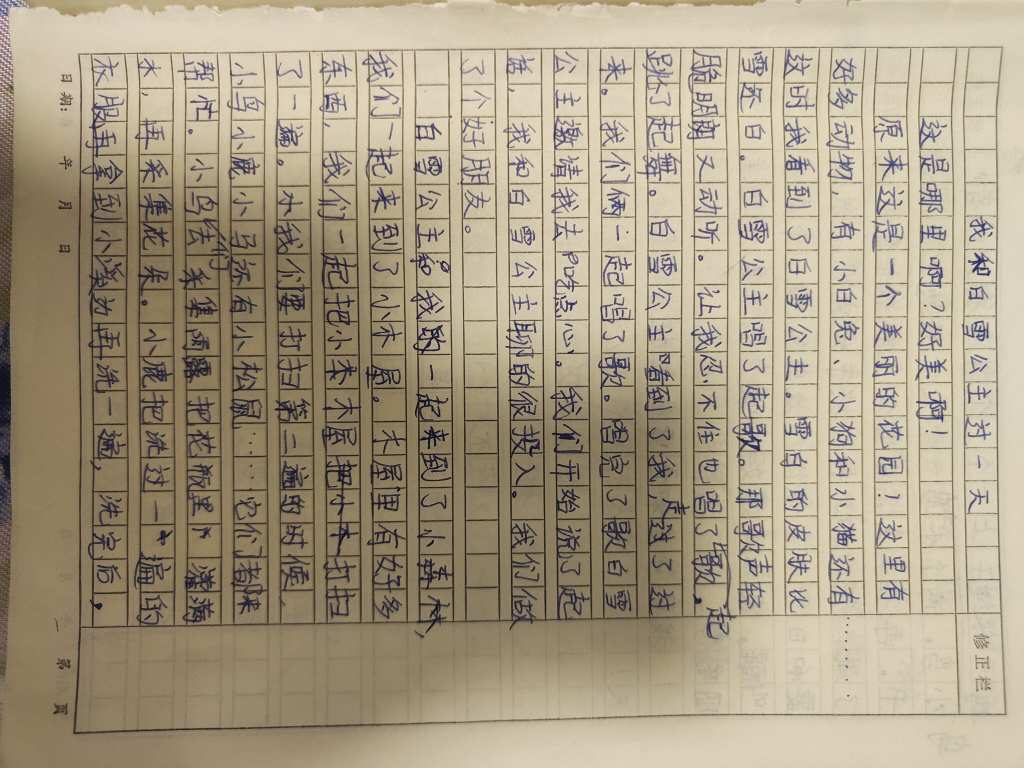 我和白雪公主过一天
修正栏
这是哪里啊?好美啊!
原来这是一个美丽的花园!这里有
好多动物,有小白兔、小狗和小猫还有……
这时我看到了白雪公主。雪白的皮肤比
雪还白。白雪公主唱了起歌。那歌声轻
脆明亮又动听。让我忍不住也唱了歌。起
跳了起舞。白雪公主看到了我,走过了过
来。我们俩一起唱了歌。唱完了歌白雪
公主邀请我去吃点心。我们开始说了起
话,我和白雪公主聊的很投入。我们做
了个好朋友。
白雪公主和我的一起来到了小森林,
我们一起来到了小木屋。木屋里有好多
东西,我们一起把小木屋把小木打扫
了一遍。水我们要打扫第二遍的时候,
小鸟小鹿小马还有小松鼠……它们都来
帮忙。小鸟们采集雨露把花瓶里灌满
水,再采集花朵。小鹿把洗过一遍的
衣服再拿到小溪边再洗一遍,洗完后,
日期: 年 月 日
第 页